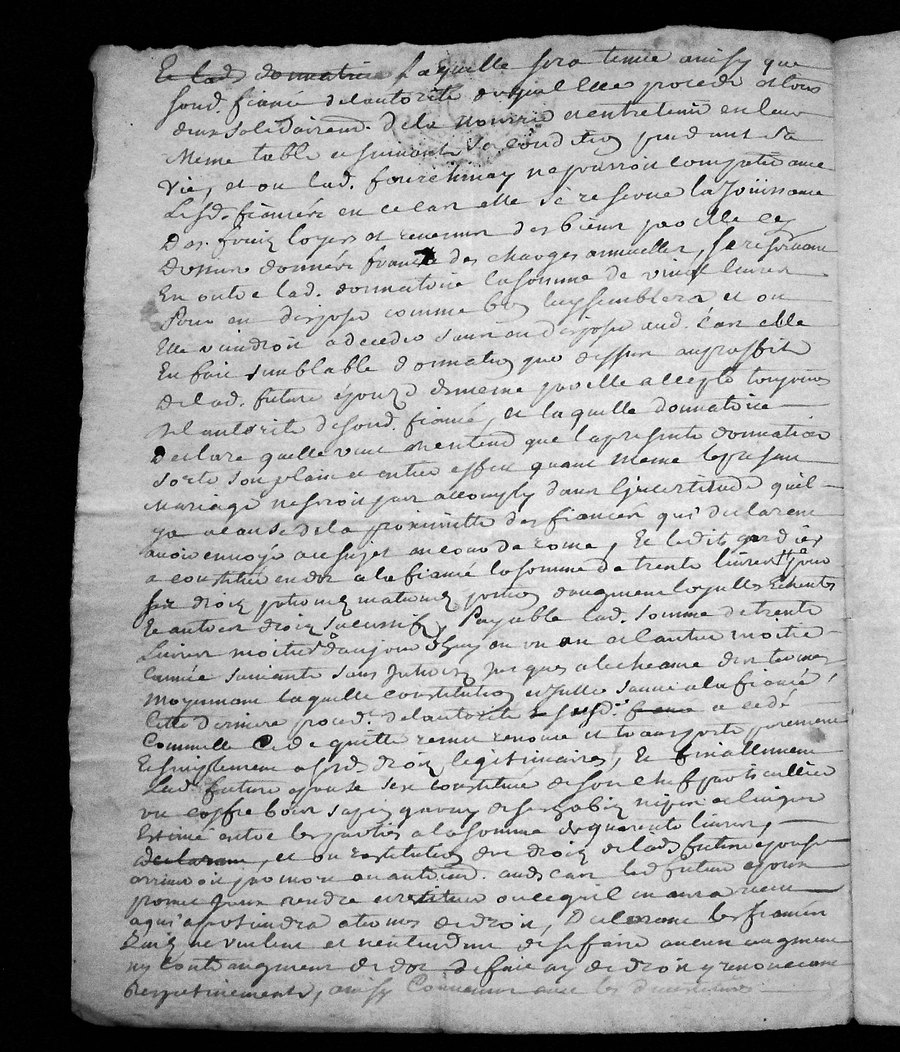 Et lad. donnatrice laquelle sera tenue ainsy que
sond. fiancé de lautorité duquel elle procede et tous
deux solidairem. de la nourrir et entretenir en leur
meme table et suivant sa condition pendant sa
vie, et ou lad. ne pourroit compatir avec
lesd. fiancés en ce cas elle se reserve la jouissance
des fruits loyers et revenus des biens par elle cy
dessus donnés francs des charges annuelles, se reservant
en outre lad. donnatrice la somme de vingt livres
pour en disposer comme bon luy semblera et ou
elle viendroit a deceder sans en disposer aud. cas elle
en fait semblable donnation que dessus au proffit
de lad. future épouze de meme par elle acceptée toujours
de lautorité de sond. fiancé, et laquelle donnatrice
declare quelle veut et entend que la presente donnation
sorte son plain et entier effet quand meme le present
mariage ne seroit pas accomply dans lincertitude quil
ya a cause de la proximitté des fiancés qui declarent
avoir envoyé au sujet en cour de rome, et ledit
a constitué en dot a la fiancée la somme de trente livres pour
ses droits paternels maternels portion daugment loyalles
et autres droits successifs, payable lad. somme de trente
livres moitié daujourdhuy en un an et lautre moitié
lannée suivante sans jusques a lecheance des termes
moyennant laquelle constitution sauve a la fiancée,
cette derniere proced. de lautorité de susd. fiancé a cedé
comme elle cede quitte remet renonce et transporte purement
et simplement a sesd. droits legitimaires, et finallement
lad. future épouse sest constitué de son chef particullier
un coffre bois sapin garny de ses habits nipes et linges
estimé entre les parties a la somme de quarente livres,
declarant, et ou restitution des droits de lad. future épouse
arriveroit promort ou autrem. aud. cas led. futur époux
promet rendre et restituer ce quil en aura receu
a qui apartiendra a termes de droit, declarant les fiancés
quils ne veulent et nentendent de se faire aucun augment
ny contraugment de dot de fait ny de droit y renoncant
respectivement, ainsy convenu avec les